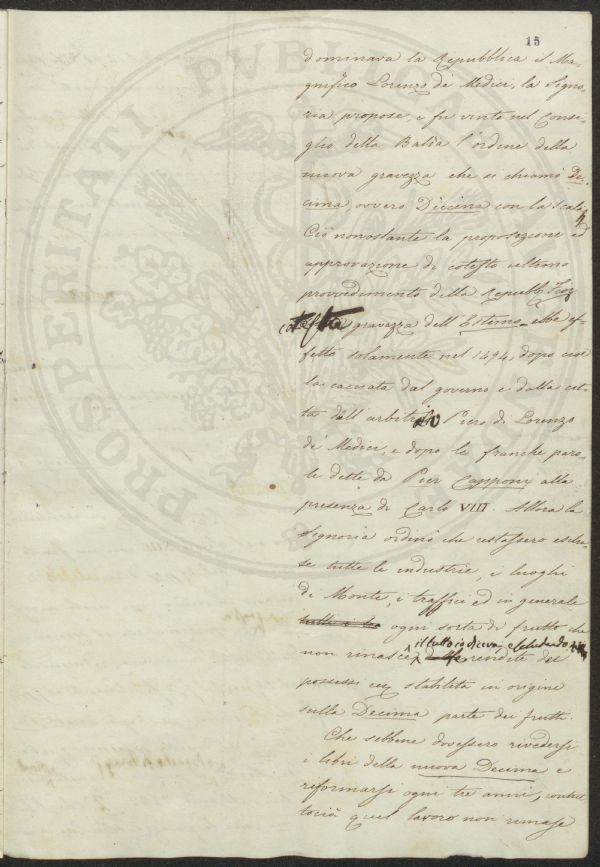 15
dominava la Repubblica il Ma-
gnifico Lorenzo de' Medici, la Signo-
ria propose, e fu vinto nel Consi-
glio della Balìa l'ordine della
nuova gravezza che si chiamò De-
cima, ovvero Diecina con la scala
Ciò nonostante la proposizione ed
approvazione di cotesto ultimo
provvedimento della Repubb.
cotesta gravezza dell'Estimo ebbe ef-
fetto solamente nel 1494, dopo cioè
la cacciata dal governo e dalla cit-
tà dell' Piero di Lorenzo
de' Medici, e dopo le franche paro-
le dette da Pier Capponi alla
presenza di Carlo VIII. Allora la
Signoria ordinò che restassero esclu-
se tutte le industrie, i luoghi
di Monte, i traffici ed in generale
ogni sorta di frutto che
non rinasce, il tutto escludendo
rendite dei
possessi era stabilita in origine
sulla Decima parte dei frutti.
Che sebbene dovessero rivedersi
i libri della nuova Decima e
riformarsi ogni tre anni, contut-
tociò quel lavoro non rimase
PROSPERITATI PVBLICAE